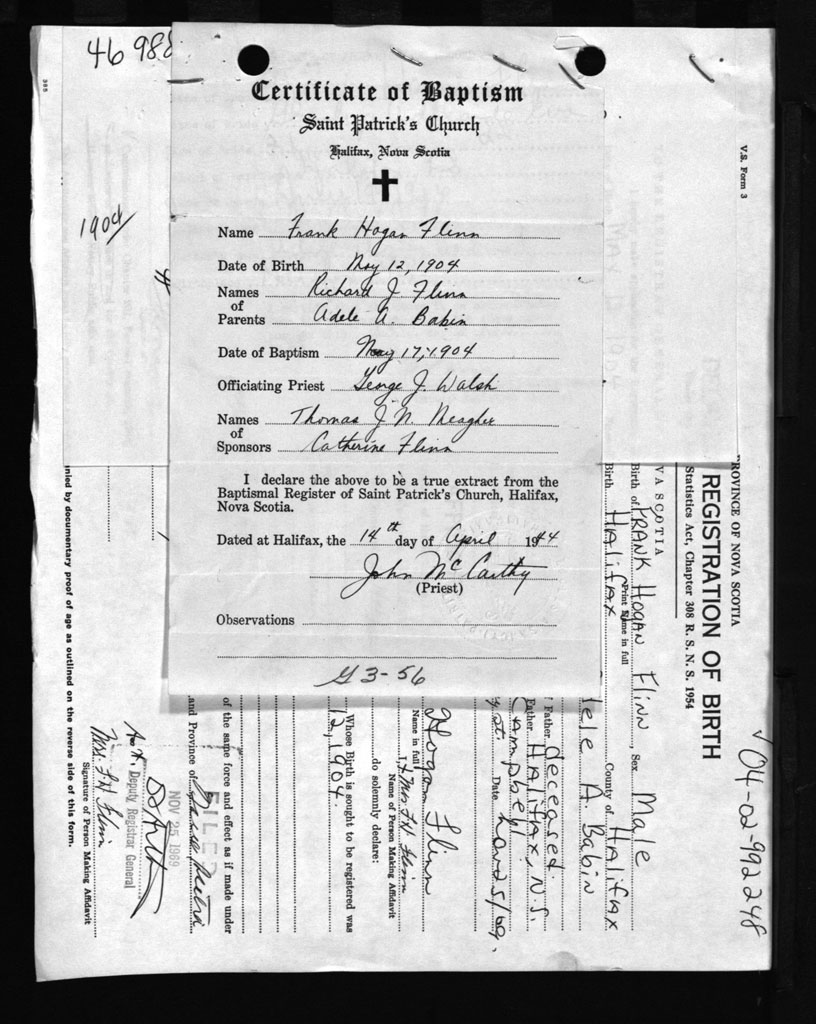 46 988
Certificate of Baptism
Saint Patrick's Church
Halifax, Nova Scotia
1904
Name Frank Hogan Flinn
Date of Birth May 12, 1904
Names of Parents Richard J. Flinn
Adele A. Babin
Date of Baptism May 17, 1904
Officiating Priest George J. Walsh
Names of Sponsors Thomas J. N. Meagher
Catherine Flinn
I declare the above to be a true extract from the
Baptismal Register of Saint Patrick's Church, Halifax,
Nova Scotia.
Dated at Halifax, the 14th day of April 1944
John McCarthy
(Priest)
Observations
G 3-56
V.S. Form 3
√ 04-02-992248
ROVINCE OF NOVA SCOTIA
REGISTRATION OF BIRTH
Statistics Act, Chapter 308 R. S. N. S. 1954
VA SCOTIA
Birth of FRANK HOGAN Flinn, Sex Male
Print Name in full
Birth Halifax County of Halifax
ele A. Babin
f Father deceased.
Father HALIFAX, N.S.
Campbell
y st. Date
Hogan Flinn
Name in full
I, Mrs. F. H. Flinn
Name of Person Making Affidavit
do solemnly declare:
Whose Birth is sought to be registered was
12, 1904.
of the same force and effect as if made under
and Province of Nova Scotia
FILED
NOV 25 1969
Deputy Registrar General
Mrs. F. H. Flinn
Signature of Person Making Affidavit
nied by documentary proof of age as outlined on the reverse side of this form.